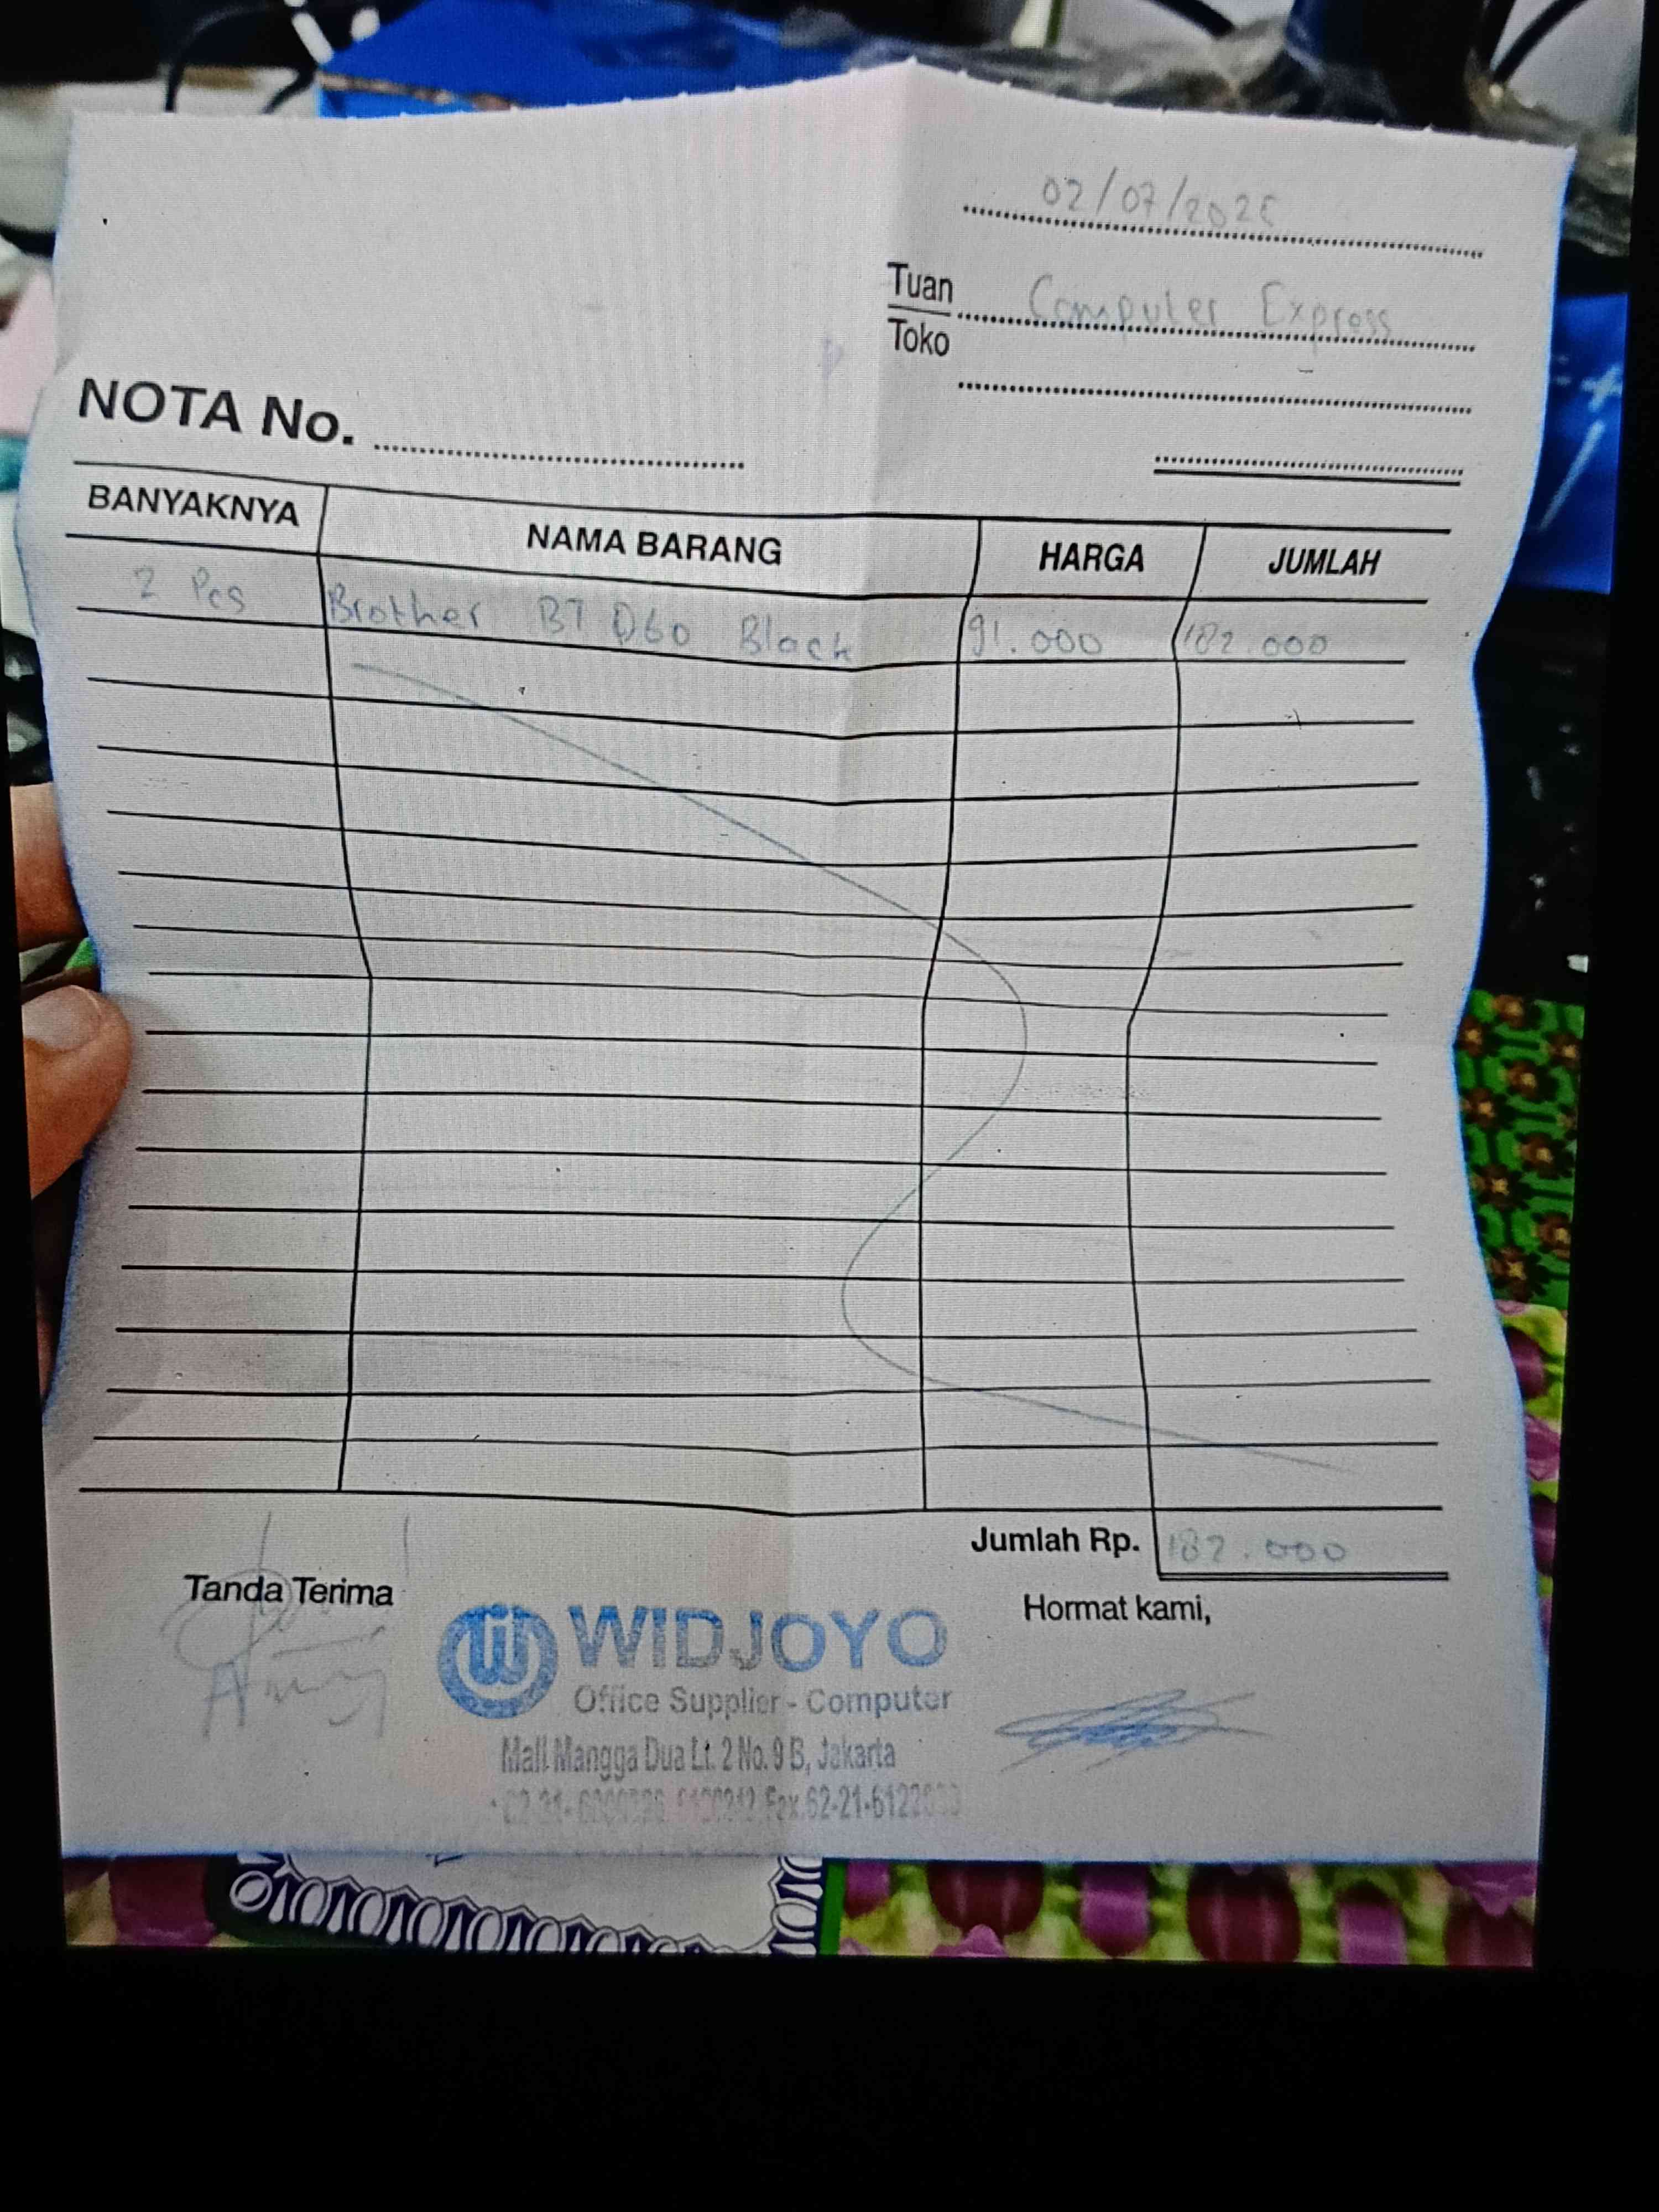 02/07/2025
Tuan Computer Express
Toko
NOTA No.
BANYAKNYA NAMA BARANG HARGA JUMLAH
2 Pcs Brother BT D60 Black 91.000 182.000
Jumlah Rp. 182.000
Tanda Terima
Hormat kami,
WIDJOYO
Office Supplier - Computer
Mall Mangga Dua Lt. 2 No. 9 B, Jakarta
Fax.62-21-